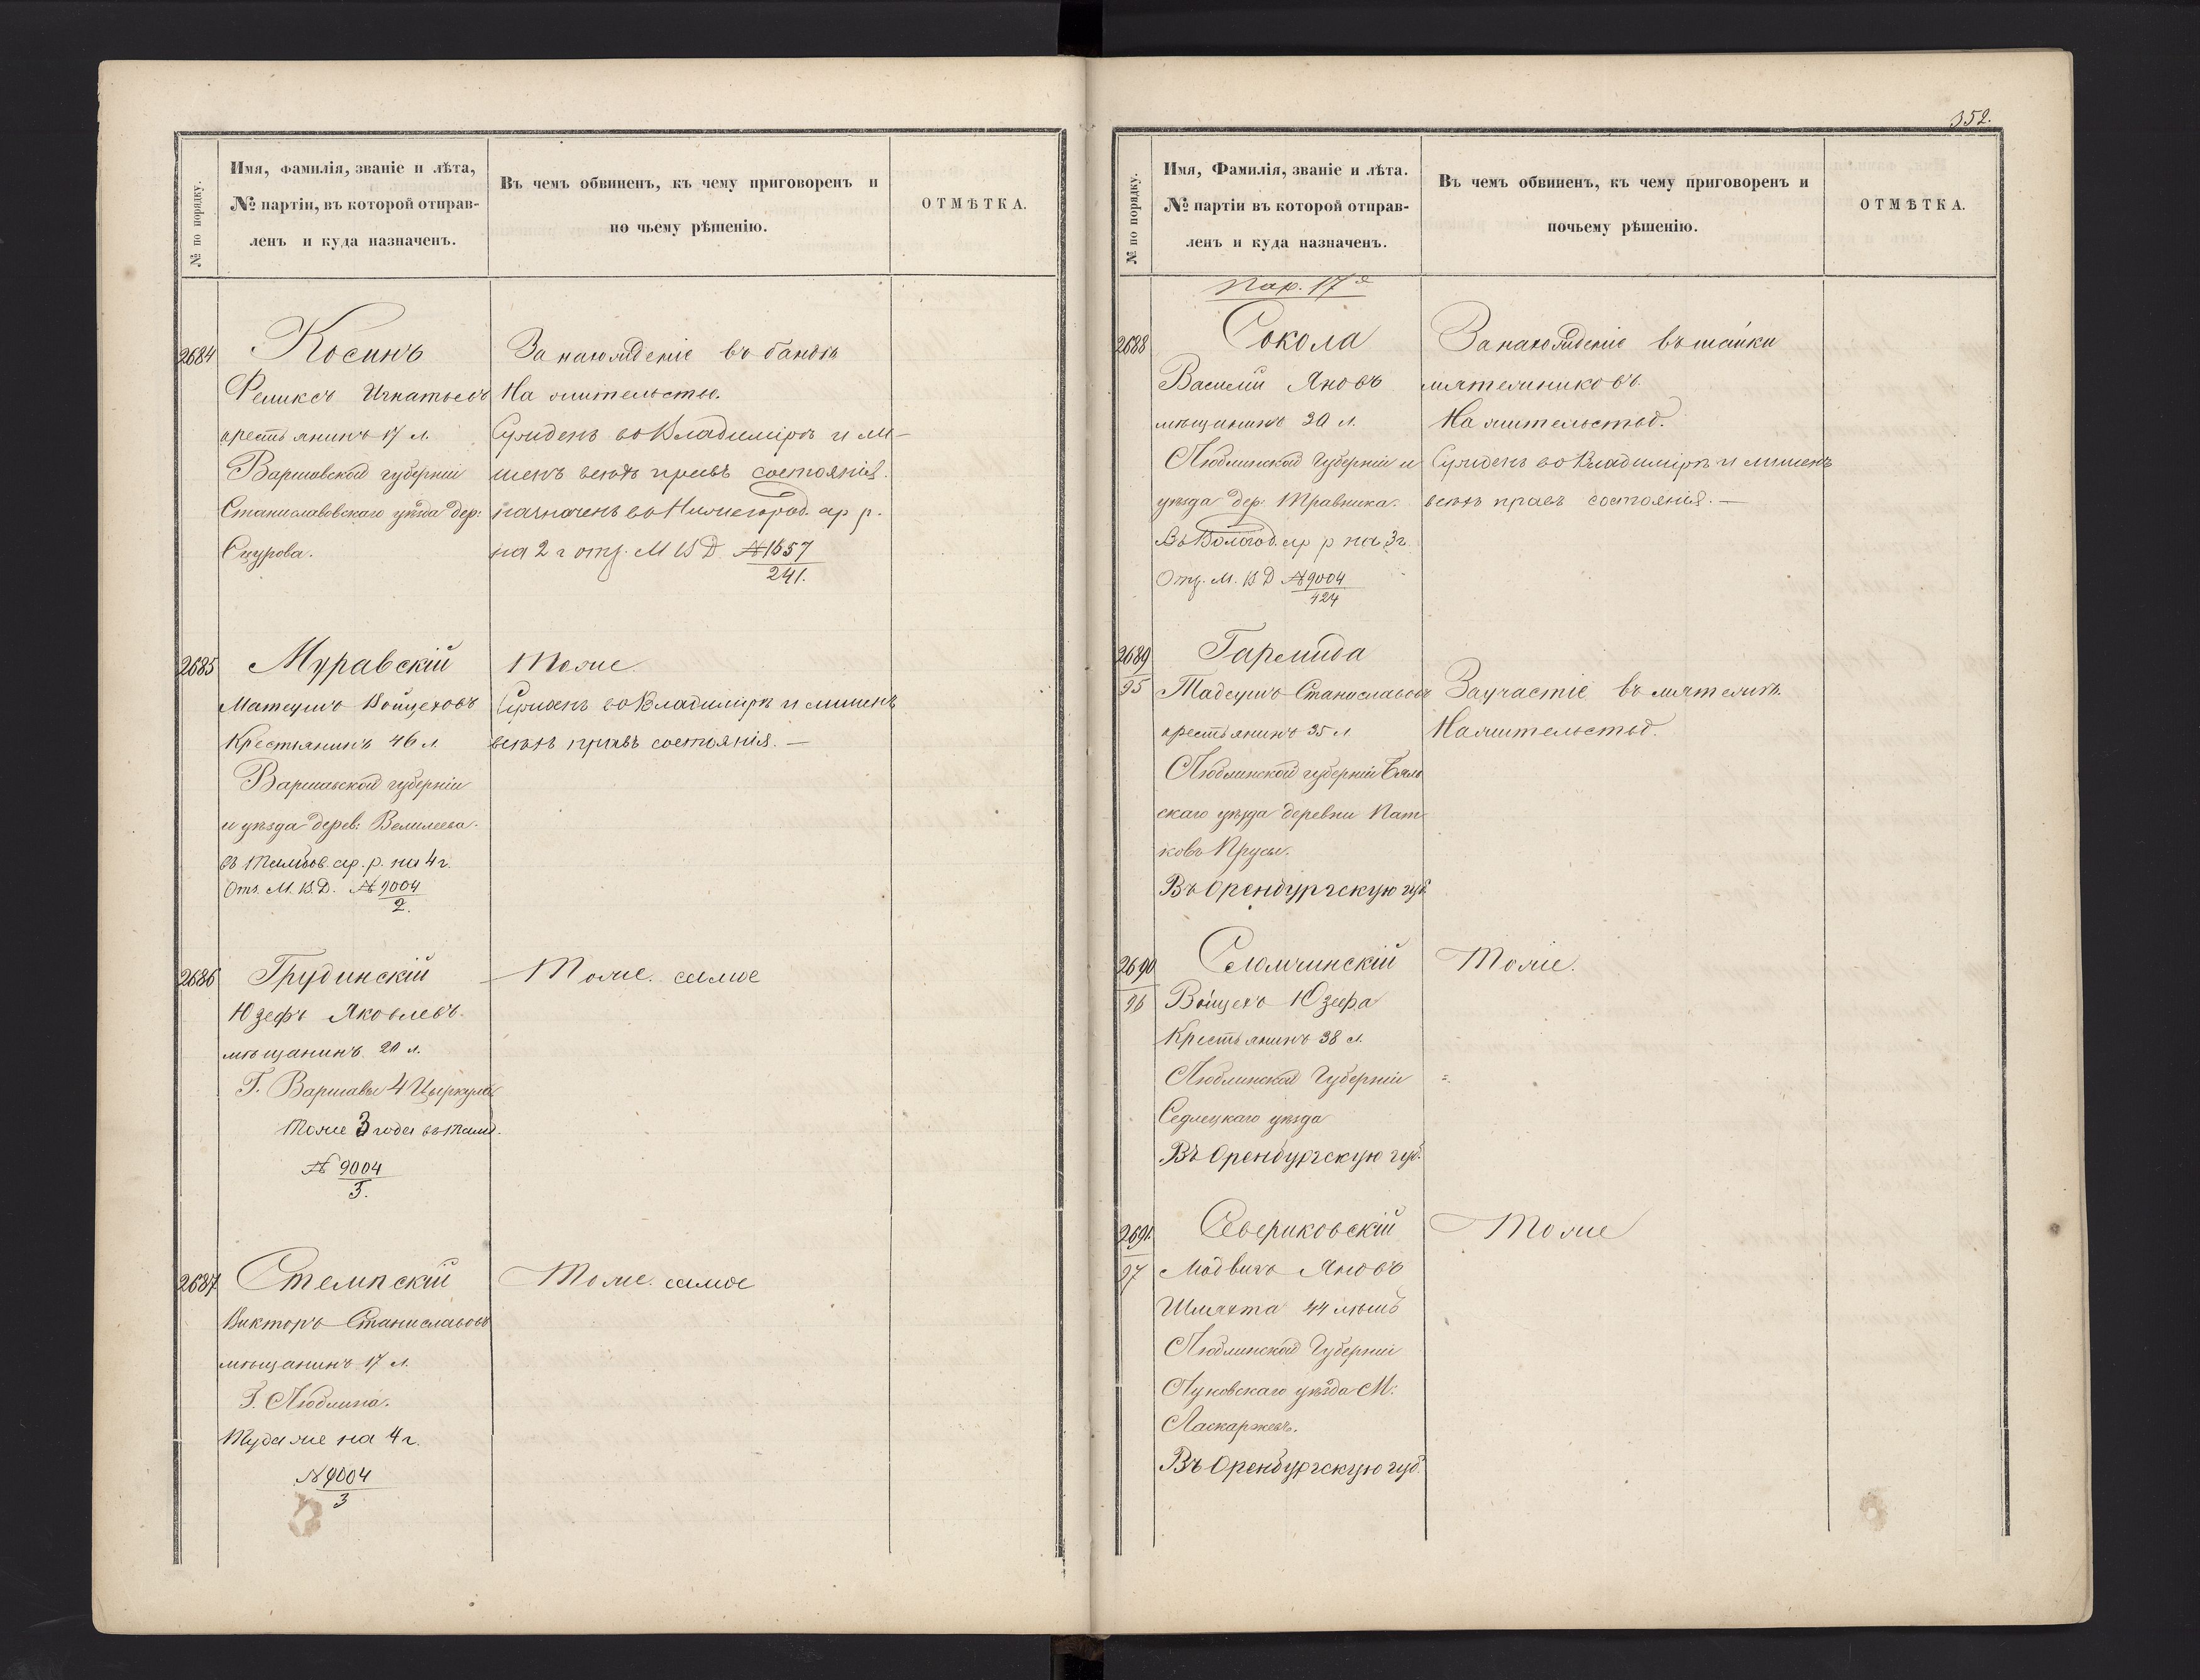 № по порядку.
Имя, фамилія, званіе и лѣта,
№ партіи, въ которой отправ-
ленъ и куда назначенъ.
Въ чемъ обвиненъ, къ чему приговоренъ и
по чьему рѣшенію.
ОТМѢТКА.
2684
Косинъ
Феликсъ Игнатьевъ
крестьянинъ 17 л.
Варшавской губерніи
Станиславовскаго уѣзда дер:
Сцурова.
За нахожденіе въ бандѣ
На жительство.
Сужденъ во Владимірѣ и ли-
шенъ всѣхъ правъ состоянія.
назначенъ во Нижегород. ар р.
на 2 г отз. М В Д №1657
241.
2685
Муравскій
Матеушъ Войцеховъ
Крестьянинъ 46 л.
Варшавской губерніи
и уѣзда дерев:
въ Тамбов. ар. р. на 4 г.
Отз. М. В. Д. № 9004
2.
Тоже
Сужденъ во Владимірѣ и лишенъ
всѣхъ правъ состоянія. —
2686
Грудинскій
Юзефъ Яковлевъ.
мѣщанинъ 20 л.
Г. Варшавы 4 Цыркула
Тоже 3 года въ Тамб.
№ 9004
3.
Тоже. самое
2687
Стемпскій
Викторъ Станиславовъ
мѣщанинъ 17 л.
Г. Люблина.
Туда же на 4 г.
№ 9004
3
Тоже. самое
352.
№ по порядку.
Имя, Фамилія, званіе и лѣта.
№ партіи въ которой отправ-
ленъ и куда назначенъ.
Въ чемъ обвиненъ, къ чему приговоренъ и
почьему рѣшенію.
ОТМѢТКА.
Пар. 17я
2688
Сокола
Василій Яновъ
мѣщанинъ 30 л.
Люблинской Губерніи и
уѣзда дер. Травника.
Въ Вологод. ар р на 3 г.
Отз. М. В Д № 9004
424
За нахожденіе въ шайки
мятежниковъ.
На жительство.
Сужденъ во Владимірѣ и лишенъ
всѣхъ правъ состоянія. —
2689
95
Гармида
Тадеушъ Станиславовъ
крестьянинъ 35 л.
Люблинской губерніи Бяль
скаго уѣзда деревни Пат
ковъ Прусы.
Въ Оренбургскую губ.
За участіе въ мятежѣ.
На жительство.
2690
96
Селомчинскій
Войцехъ Юзефа
Крестьянинъ 38 л.
Люблинской Губерніи
Седлецкаго уѣзда
Въ Оренбургскую губ.
Тоже.
2691.
97
Севериковскій
Людвигъ Яновъ
Шляхта 44 лѣтъ
Люблинской Губерніи
Луковскаго уѣзда М:
Ласкаржевъ.
Въ Оренбургскую губ.
Тоже